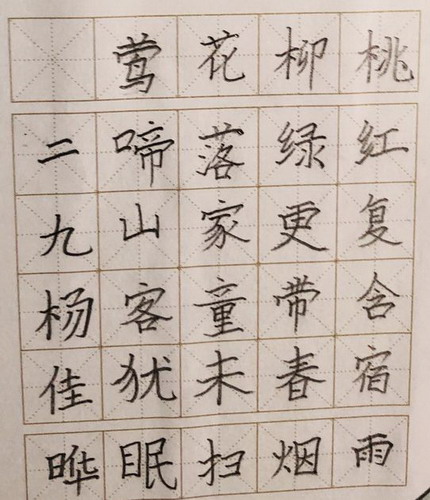 桃红复含宿雨
柳绿更带春烟
花落家童未扫
莺啼山客犹眠
二九杨佳晔